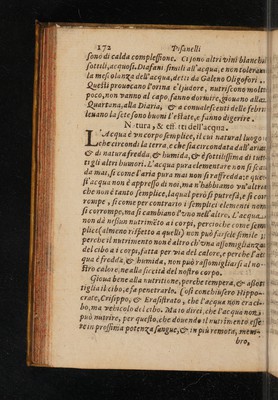 172 Pisanelli
sono di calda complessione. Ci sono altri vini bianchi
sottili, acquosi. Diafani simili all'acqua, e non tolerano
la mescolanza dell'acqua, detti da Galeno Oligofori.
Questi prouocano l'orina e'l sudore, nutriscono molto
poco, non vanno al capo, fanno dormire, giouano alla
Quartana, alla Diaria, & a conualescenti delle febri
leuano la sete sono buoni l'estate, e fanno digerire.
Natura, & effetti dell'acqua.
L'Acqua è vn corpo semplice, il cui natural luogo è
che circondi la terra, e che sia circondata dall'aria:
& di natura fredda, & humida, & è sottilissima di tut-
ti gli altri humori. L'acqua pura elementare non si scal-
da mai, si come l'aria pura mai non si raffredda: que-
st'acqua non è appresso di noi, ma n'habbiamo vn'altra
che non è tanto semplice, la qual però si putrefà, e si cor-
rompe, si come per contrario i semplici elementi non
si corrompe, ma si cambiano l'uno nell'altro. L'acqua
non dà nessun nutrimento a i corpi, percioche come sem
plice (almeno rispetto a quelli) non può farsele simile
perche il nutrimento non è altro ch'vna assomiglianza
del cibo a i corpi, fatta per via del calore, e perche l'ac
qua è fredda, & humida, non può rassomigliarsi al no-
stro calore, ne alla siccità del nostro corpo.
Gioua bene alla nutritione, perche tempera, & assot-
tiglia il cibo, e fa penetrarlo. Così conchiusero Hippo-
crate, Crisippo, & Erasistrato, che l'acqua non era ci-
bo, ma veicolo del cibo. Ma to dirci, che l'acqua non
può nutrire, per questo, che douendo il nutrimento esse-
re in prossima potenza sangue, & in più remota, mem-
bro,